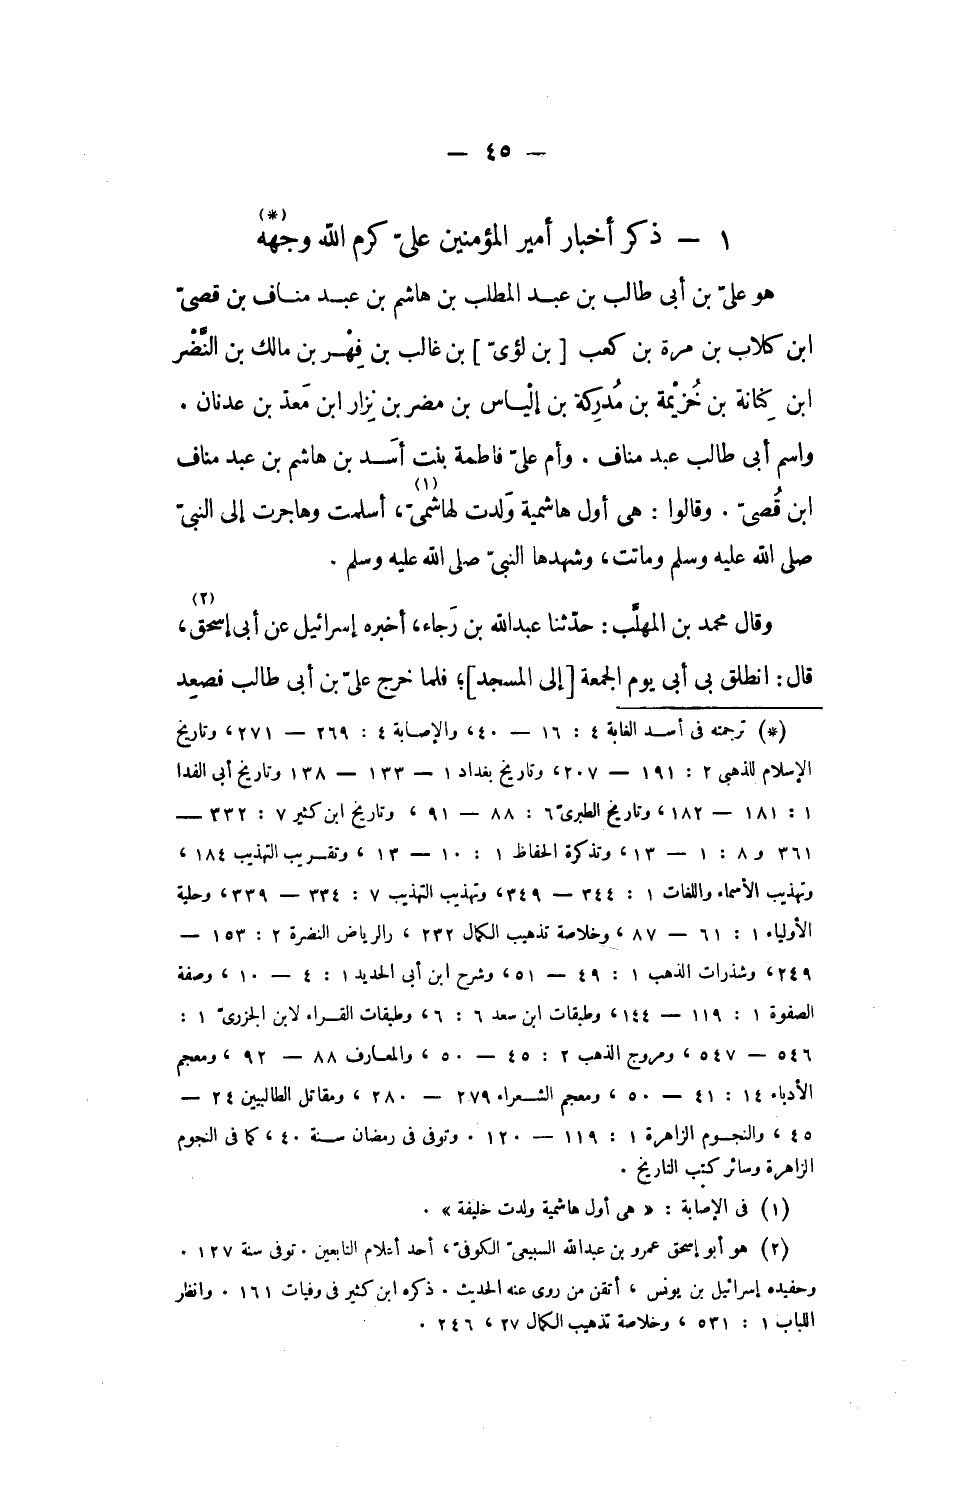 — ٤٥ —
١ — ذكر أخبار أمير المؤمنين علىّ كرم الله وجهه (*)
هو علىّ بن أبى طالب بن عبد المطلب بن هاشم بن عبد مناف بن قصىّ
ابن كلاب بن مرة بن كعب [ بن لؤىّ ] بن غالب بن فِهْر بن مالك بن النَّضْر
ابن كِنانة بن خُزَيْمة بن مُدرِكة بن إلْياس بن مضر بن نِزار ابن مَعدّ بن عدنان .
واسم أبى طالب عبد مناف . وأم علىّ فاطمة بنت أسَد بن هاشم بن عبد مناف
ابن قُصىّ . وقالوا : هى أول هاشمية وَلدت لهاشمىّ (١)، أسلمت وهاجرت إلى النبىّ
صلى الله عليه وسلم وماتت، وشهدها النبىّ صلى الله عليه وسلم .
وقال محمد بن المهلَّب : حدّثنا عبدالله بن رَجاء، أخبره إسرائيل عن أبى إسحق (٢)،
قال : انطلق بى أبى يوم الجمعة [إلى المسجد]؛ فلما خرج علىّ بن أبى طالب فصعِد
(*) ترجمته فى أسد الغابة ٤ : ١٦ — ٤٠، والإصابة ٤ : ٢٦٩ — ٢٧١، وتاريخ
الإسلام للذهبى ٢ : ١٩١ — ٢٠٧، وتاريخ بغداد ١ — ١٣٣ — ١٣٨ وتاريخ أبى الفدا
١ : ١٨١ — ١٨٢، وتاريخ الطبرىّ ٦ : ٨٨ — ٩١ ، وتاريخ ابن كثير ٧ : ٣٣٢ —
٣٦١ و ٨ : ١ — ١٣، وتذكرة الحفاظ ١ : ١٠ — ١٣ ، وتقريب التهذيب ١٨٤ ،
وتهذيب الأسماء واللغات ١ : ٣٤٤ — ٣٤٩، وتهذيب التهذيب ٧ : ٣٣٤ — ٣٣٩، وحلية
الأولياء ١ : ٦١ — ٨٧ ، وخلاصة تذهيب الكمال ٢٣٢ ، رالرياض النضرة ٢ : ١٥٣ —
٢٤٩، وشذرات الذهب ١ : ٤٩ — ٥١، وشرح ابن أبى الحديد ١ : ٤ — ١٠ ، وصفة
الصفوة ١ : ١١٩ — ١٤٤، وطبقات ابن سعد ٦ : ٦، وطبقات القراء لابن الجزرىّ ١ :
٥٤٦ — ٥٤٧ ، ومروج الذهب ٢ : ٤٥ — ٥٠ ، والمعارف ٨٨ — ٩٢ ، ومعجم
الأدباء ١٤ : ٤١ — ٥٠ ، ومعجم الشعراء ٢٧٩ — ٢٨٠ ، ومقاتل الطالبيين ٢٤ —
٤٥ ، والنجوم الزاهرة ١ : ١١٩ — ١٢٠ . وتوفى فى رمضان سنة ٤٠ ، كما فى النجوم
الزاهرة وسائر كتب التاريخ .
(١) فى الإصابة : « هى أول هاشمية ولدت خليفة » .
(٢) هو أبو إسحق عمرو بن عبدالله السبيعىّ الكوفىّ ، أحد أعلام التابعين . توفى سنة ١٢٧ .
وحفيده إسرائيل بن يونس ، أتقن من روى عنه الحديث . ذكره ابن كثير فى وفيات ١٦١ . وانظر
اللباب ١ : ٥٣١ ، وخلاصة تذهيب الكمال ٢٧ ، ٢٤٦ .